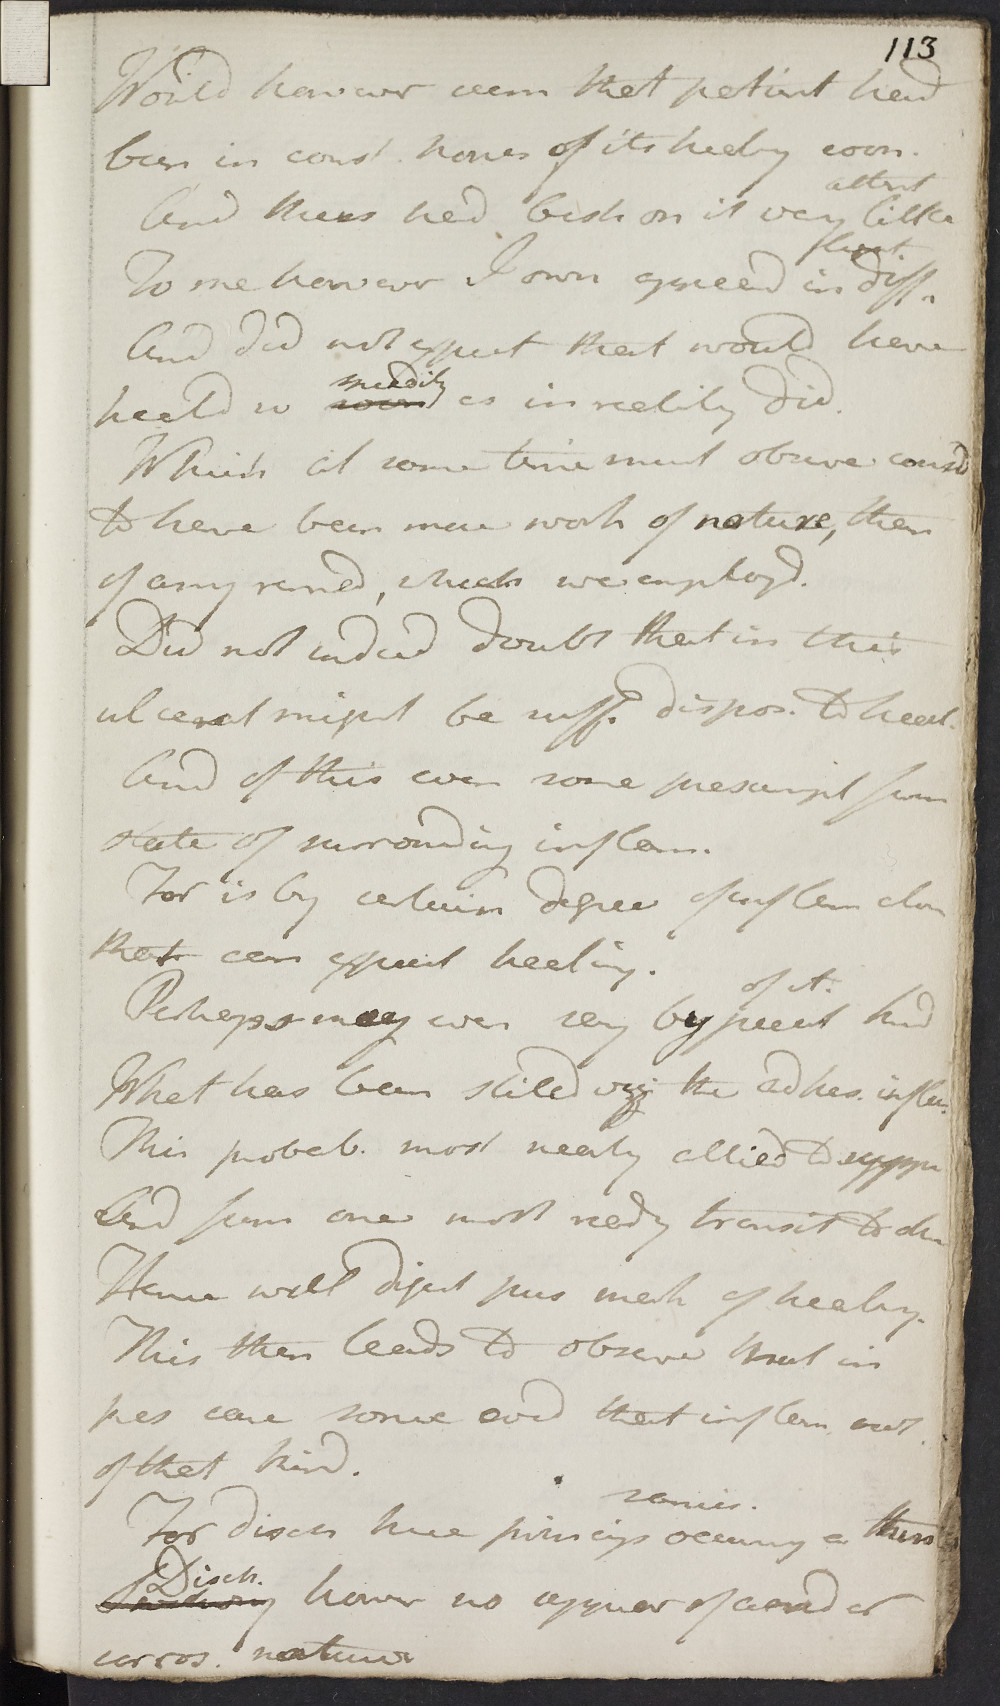 113
Would however seem that patient had
been in const. hopes of its healing soon.
attent
And thus had bestow'd on it very little
To me however I own appeared in diff.
And did not expect that would have
speedily
heald so soon as in reality did.
Which at same time must observe consid
to have been more work of nature, than
of any remed, which we employd.
Did not indeed doubt that in this
ulcerat might be suff. dispos. to heal.
And of this even some presumpt from
state of surrounding inflam.
For is by certain degree of inflam alon
that can expect healing.
of it.
Perhaps may even say by pecul kind
What has been stiled viz the adhes. inflam.
This probab. most nearly allied to suppu
And from one most ready transit to oth
Hence well digest pus mark of healing.
This then leads to observe that in
pres case some evid that inflam not
of that kind.
sanies.
For disch here principy occurring a thin
Disch.
however no appear of acrid or
corros. nature